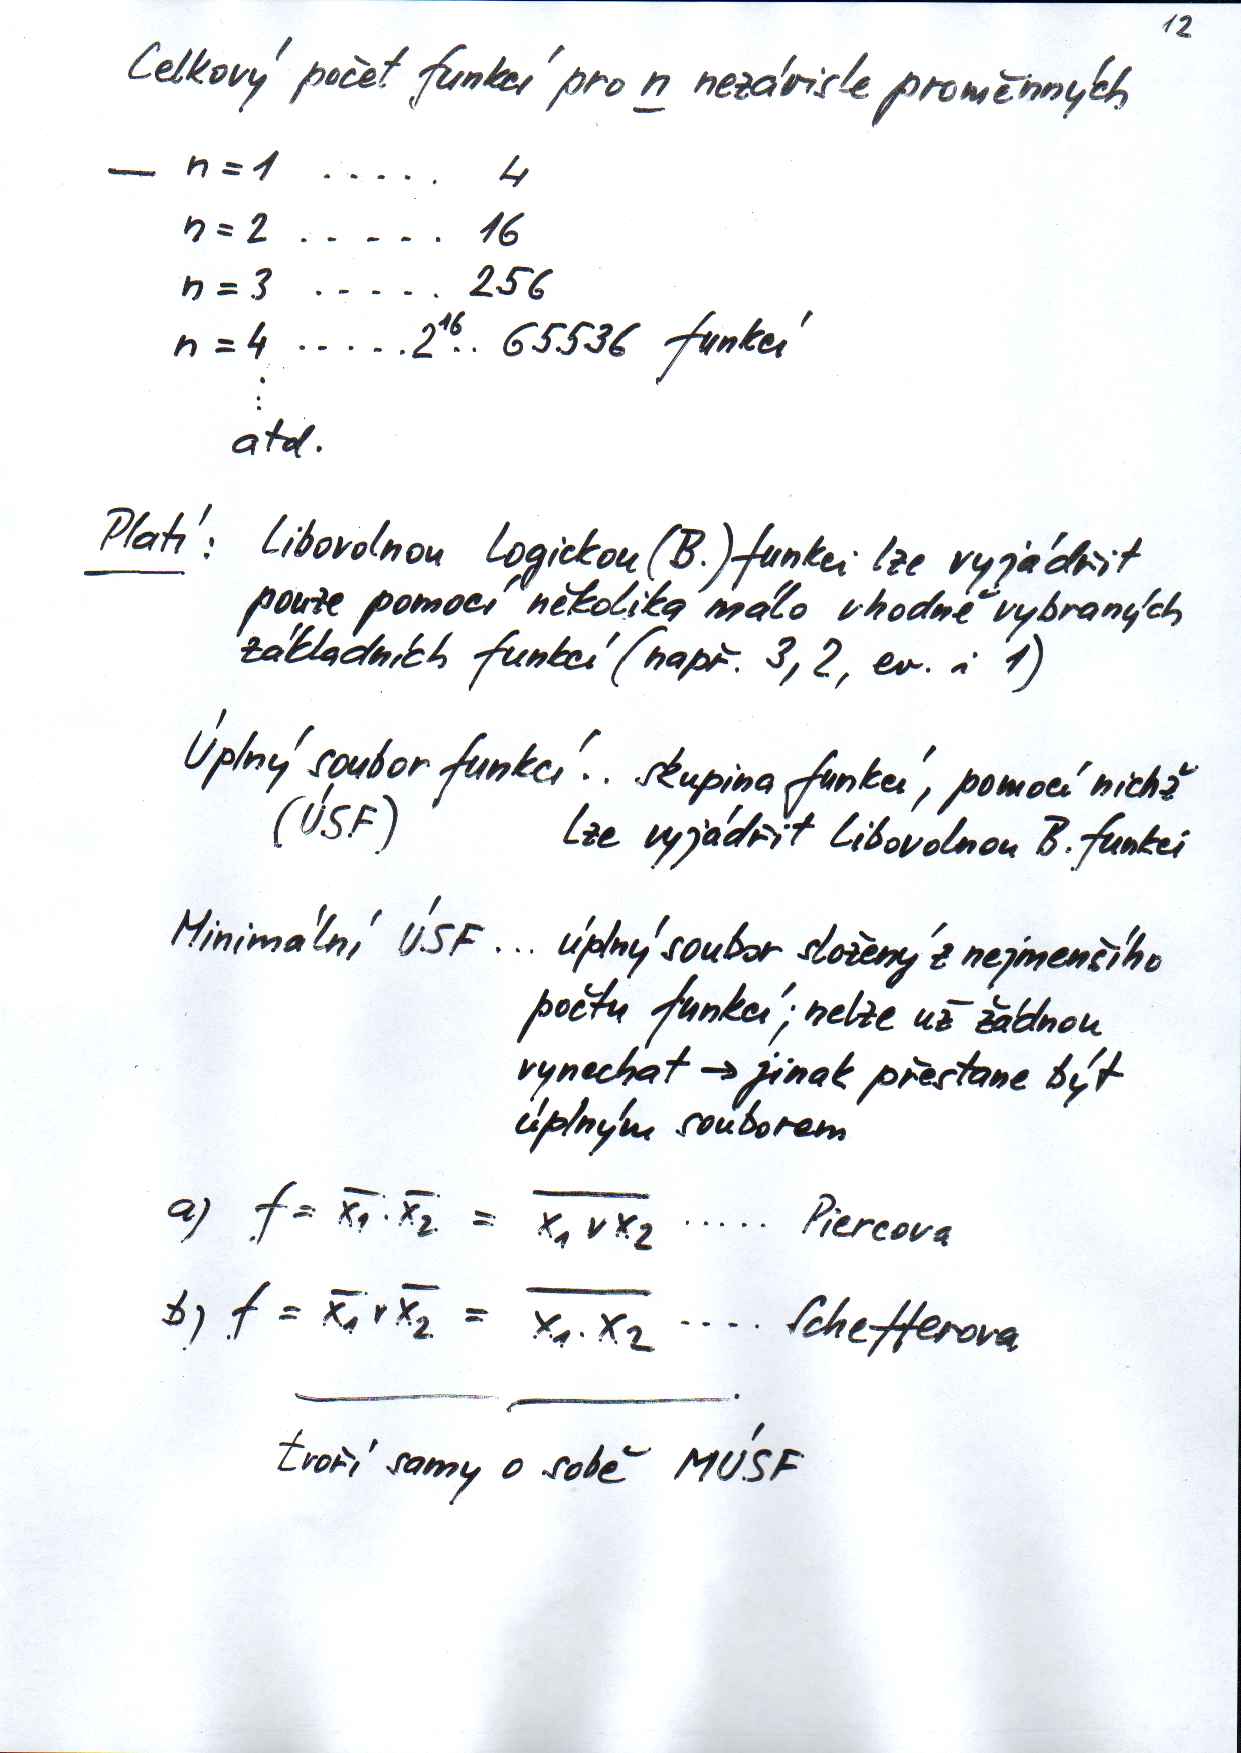 12
Celkový počet funkcí pro n nezávisle proměnných
— n = 1 ..... 4
n = 2 ..... 16
n = 3 ..... 256
n = 4 ..... 2¹⁶.. 65536 funkcí
⋮
atd.
Platí: Libovolnou logickou (B.) funkci lze vyjádřit
pouze pomocí několika málo vhodně vybraných
základních funkcí (např. 3, 2, ev. i 1)
Úplný soubor funkcí .. skupina funkcí, pomocí nichž
(ÚSF) lze vyjádřit libovolnou B. funkci
Minimální ÚSF ... úplný soubor složený z nejmenšího
počtu funkcí; nelze už žádnou
vynechat → jinak přestane být
úplným souborem
a) f = x̅₁ . x̅₂ = \overline{x₁ v x₂} ..... Piercova
b) f = x̅₁ v x̅₂ = \overline{x₁ . x₂} .... Schefferova
tvoří samy o sobě MÚSF